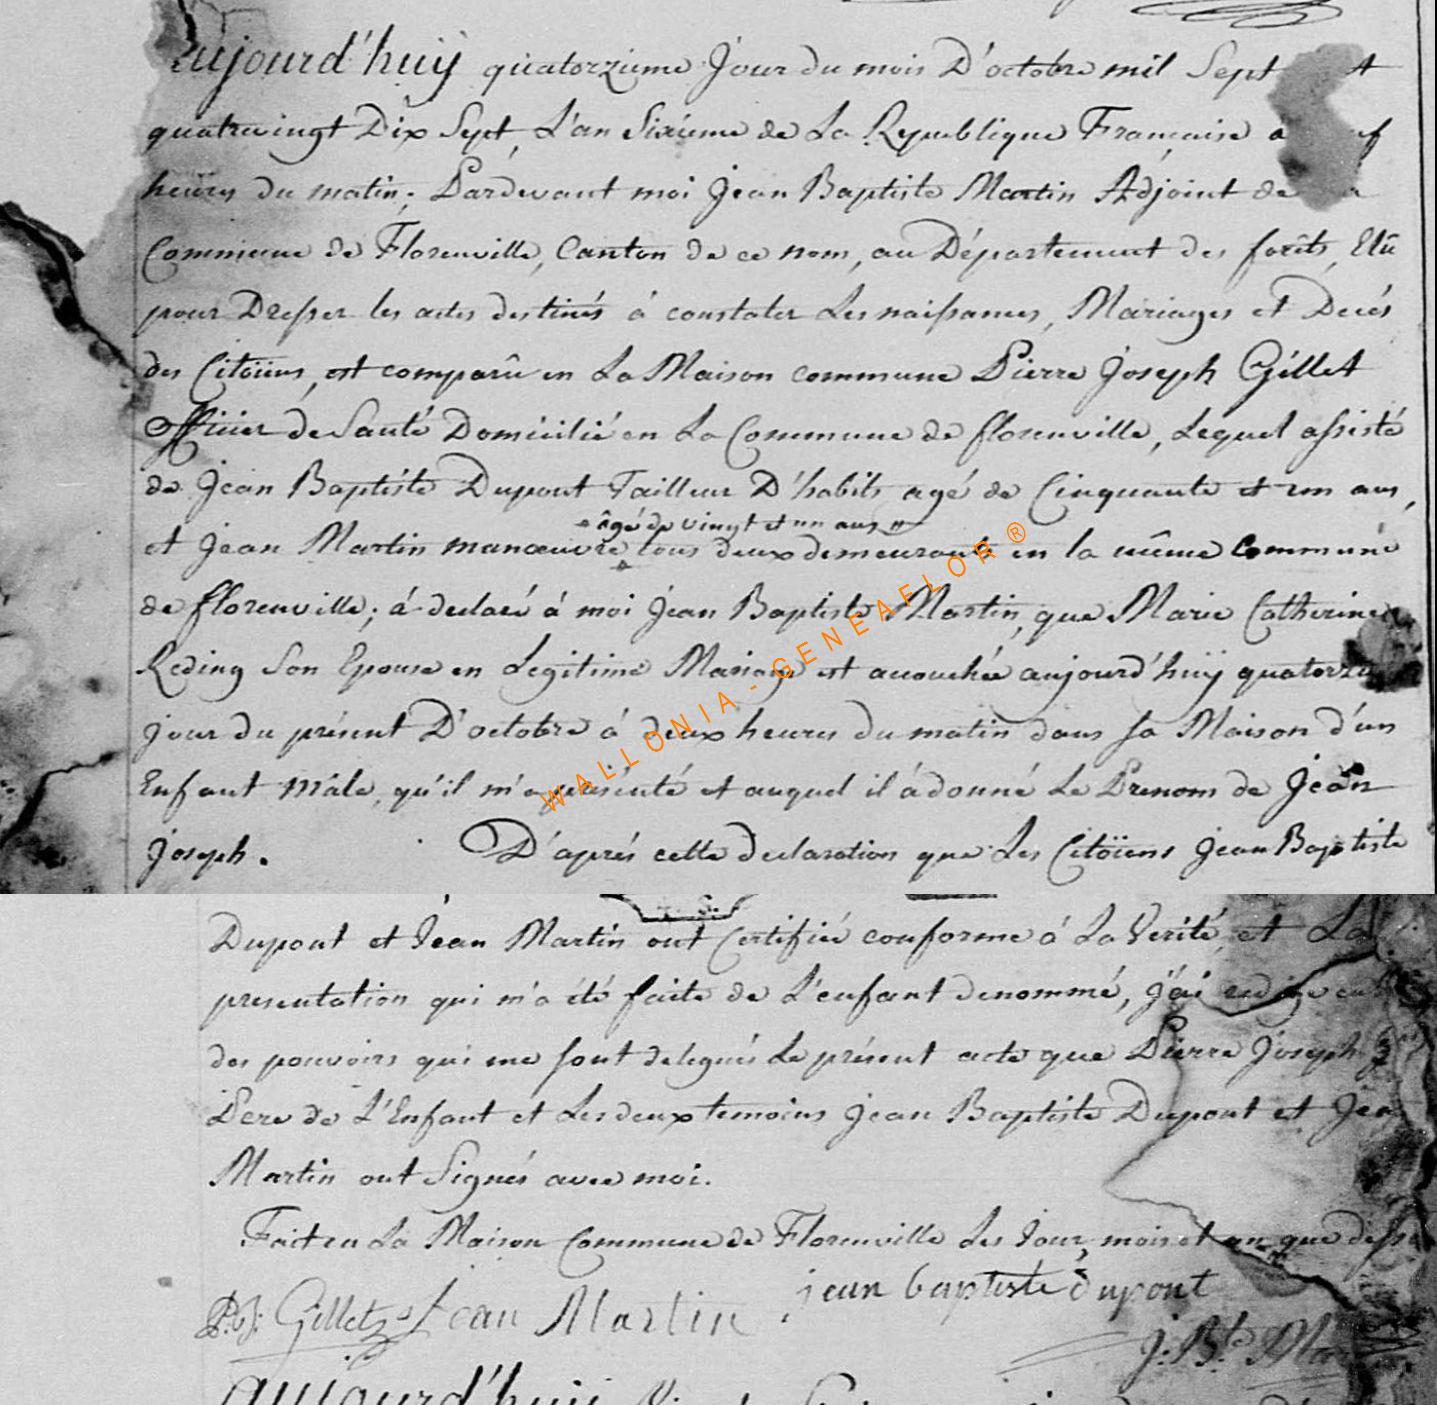 aujourd'huÿ quatorzieme Jour du mois D'octobre mil Sept
quatrevingt Dix Sept, L'an Sixieme de La Republique Française a
heures du matin; Pardevant moi Jean Baptiste Martin Adjoint de
Commune de Florenville, Canton de ce nom, au Département des forêts, Elû
pour Dresser les actes destinés á constater Les naissances, Mariages et Decés
des Citoïens, est comparû en La Maison commune Pierre Joseph Gillet
officier de Santé Domicilié en La Commune de florenville, Lequel assisté
de Jean Baptiste Dupont Tailleur D'habits agé de Cinquante et un ans,
âgé de vingt et un ans
et Jean Martin manœuvre tous deux demeurants en la même Commune
de florenville; á declaré á moi Jean Baptiste Martin, que Marie Catherine
Reding Son Epouse en Legitime Mariage est accouchée aujourd'huÿ quatorzieme
jour du présent D'octobre á deux heures du matin dans sa Maison d'un
Enfant Mâle, qu'il m'a présenté et auquel il á donné Le Prenom de Jean
Joseph. D'aprés cette declaration que Les Citoïens Jean Baptiste
Dupont et Jean Martin ont Certifié conforme á La Verité, et La
presentation qui m'a été faite de L'enfant denommé, j'ái redigé
des pouvoirs qui me sont delegués Le présent acte que Pierre Joseph
Pere de L'Enfant et Les deux temoins Jean Baptiste Dupont et Jean
Martin ont Signés avec moi.
Fait en La Maison Commune de Florenville Les Jour, mois et an que dessus
P: J: Gillet Jean Martin jean baptiste dupont
J: Bte Martin
aujourd'huÿ
WALLONIA - GENEAFLOR ®